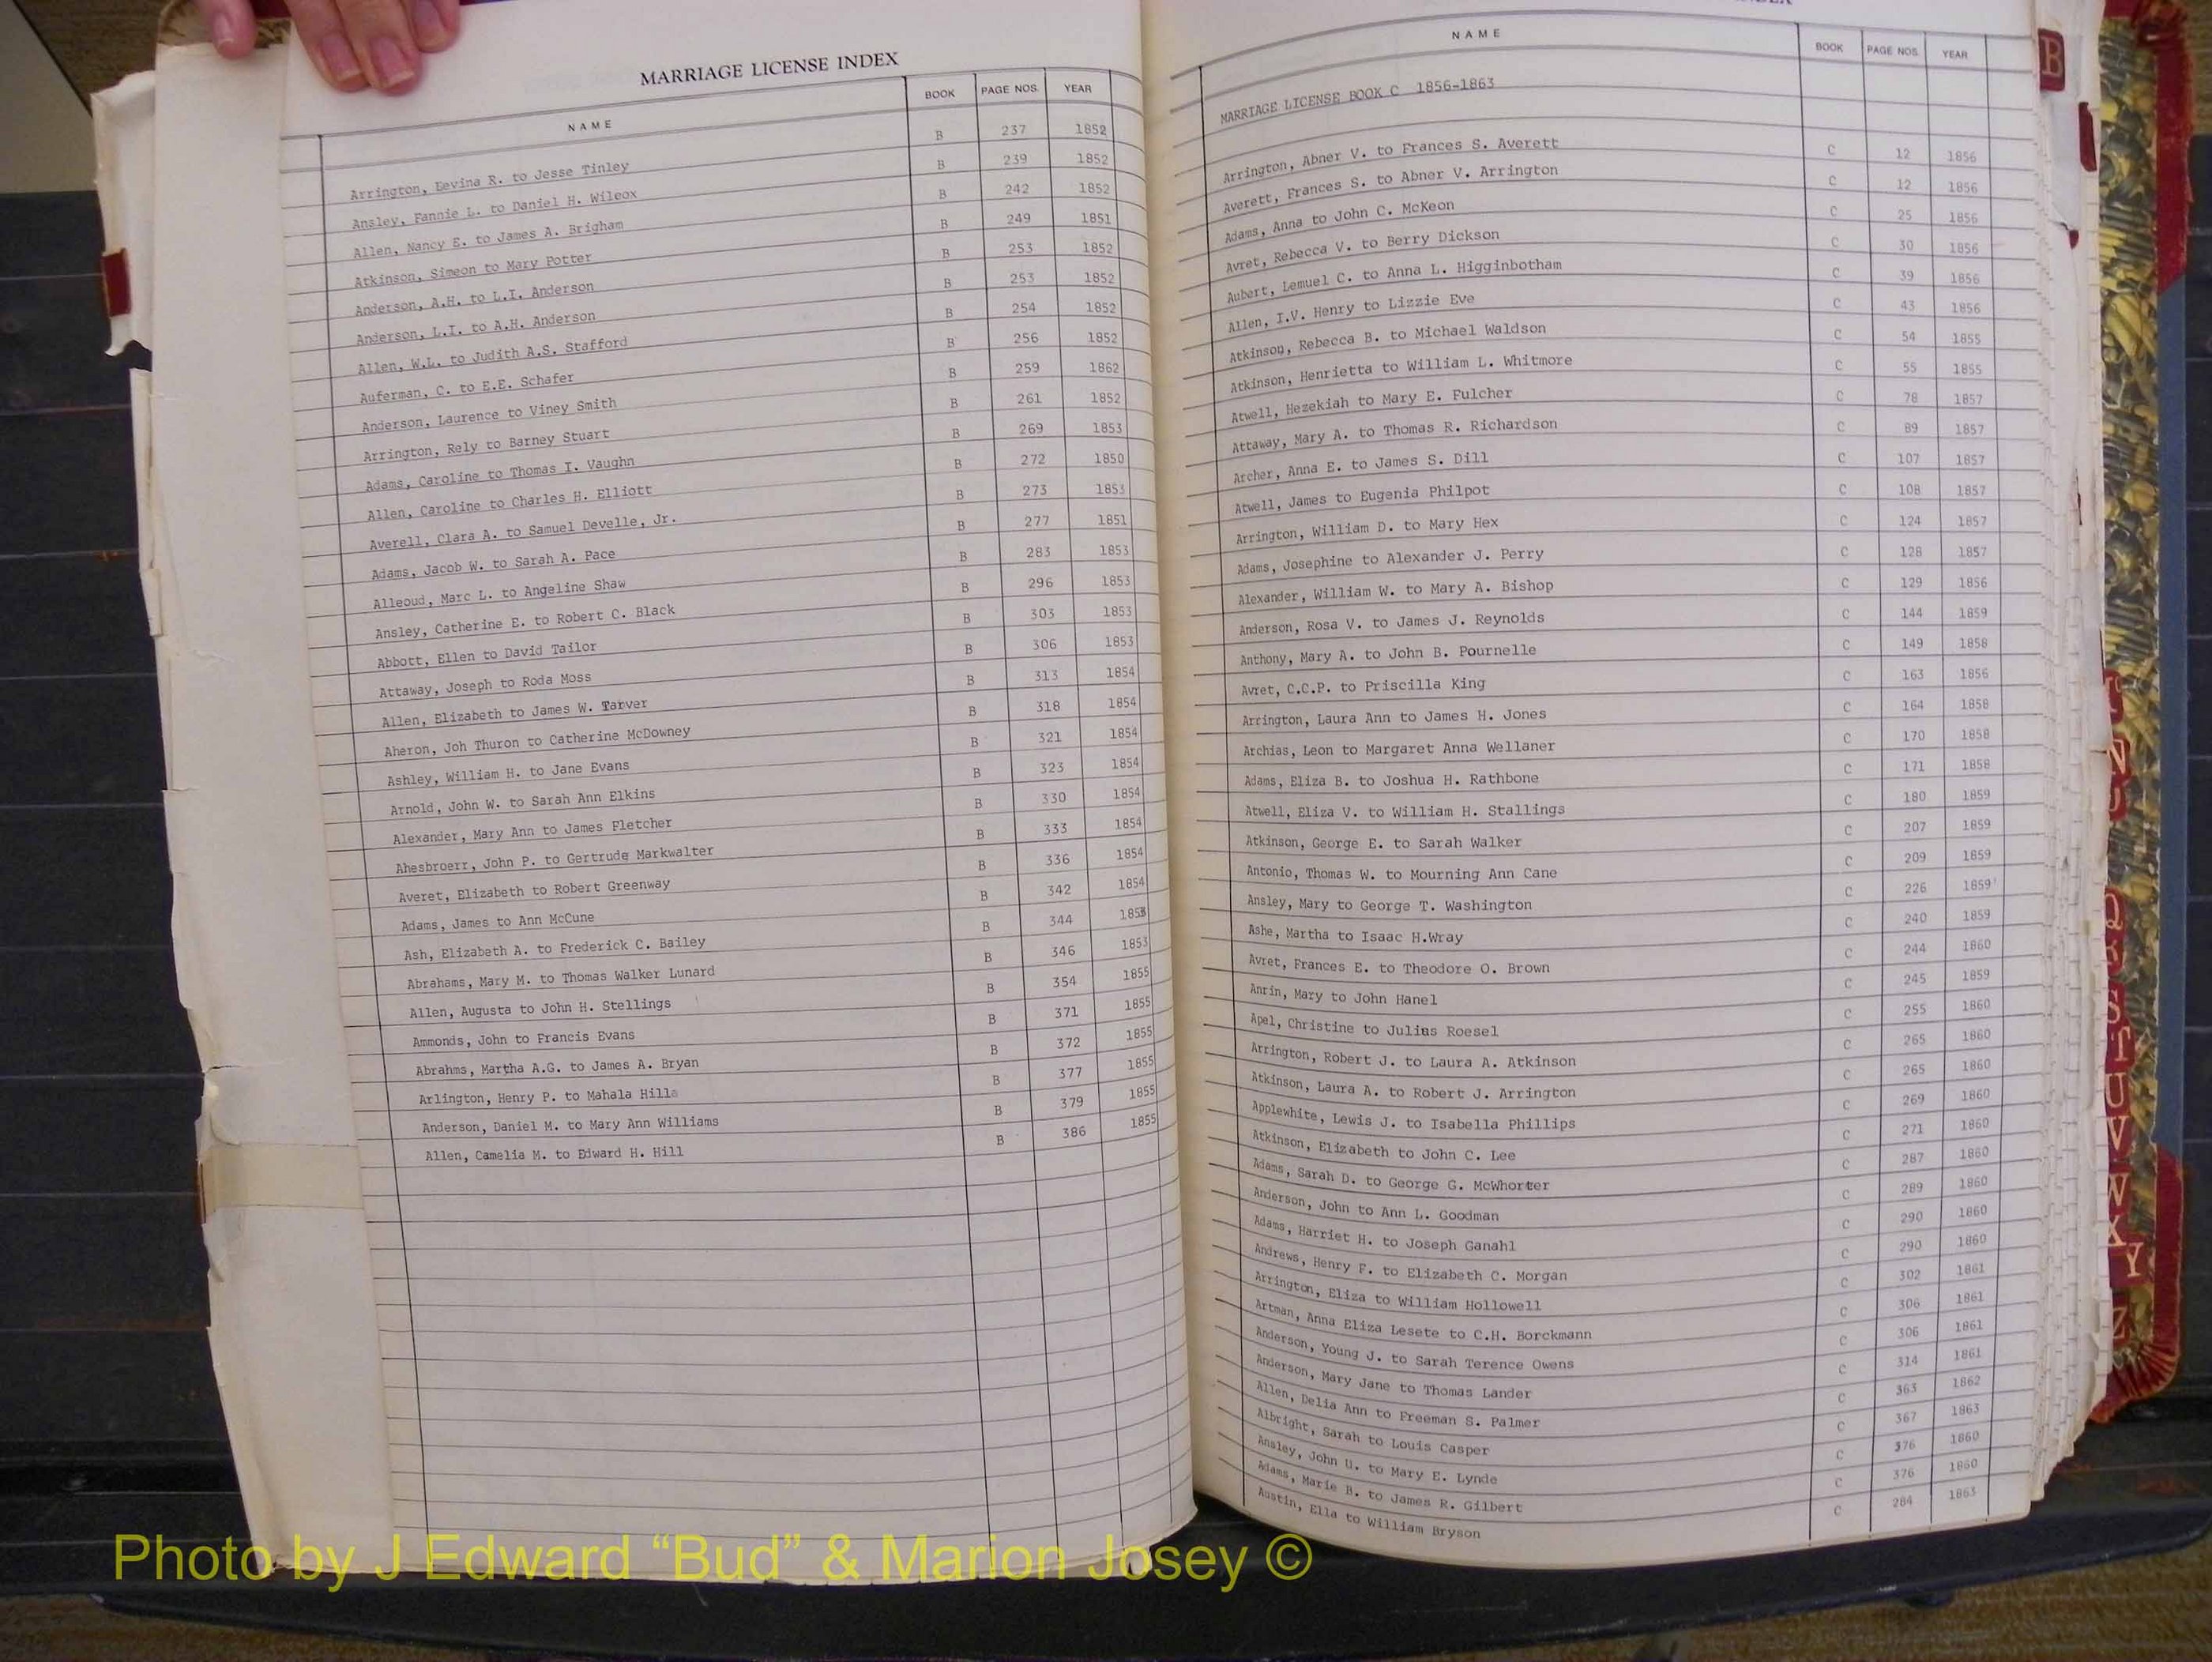 MARRIAGE LICENSE INDEX
NAME BOOK PAGE NOS. YEAR
Arrington, Eevina R. to Jesse Tinley B 237 1852
Ansley, Fannie L. to Daniel H. Wilcox B 239 1852
Allen, Nancy E. to James A. Brigham B 242 1852
Atkinson, Simeon to Mary Potter B 249 1851
Anderson, A.H. to L.I. Anderson B 253 1852
Anderson, L.I. to A.H. Anderson B 253 1852
Allen, W.L. to Judith A.S. Stafford B 254 1852
Auferman, C. to E.E. Schafer B 256 1852
Anderson, Laurence to Viney Smith B 259 1862
Arrington, Rely to Barney Stuart B 261 1852
Adams, Caroline to Thomas I. Vaughn B 269 1853
Allen, Caroline to Charles H. Elliott B 272 1850
Averell, Clara A. to Samuel Develle, Jr. B 273 1853
Adams, Jacob W. to Sarah A. Pace B 277 1851
Alleoud, Marc L. to Angeline Shaw B 283 1853
Ansley, Catherine E. to Robert C. Black B 296 1853
Abbott, Ellen to David Tailor B 303 1853
Attaway, Joseph to Roda Moss B 306 1853
Allen, Elizabeth to James W. Tarver B 313 1854
Aheron, Joh Thuron to Catherine McDowney B 318 1854
Ashley, William H. to Jane Evans B 321 1854
Arnold, John W. to Sarah Ann Elkins B 323 1854
Alexander, Mary Ann to James Fletcher B 330 1854
Ahesbroerr, John P. to Gertrude Markwalter B 333 1854
Averet, Elizabeth to Robert Greenway B 336 1854
Adams, James to Ann McCune B 342 1854
Ash, Elizabeth A. to Frederick C. Bailey B 344 1853
Abrahams, Mary M. to Thomas Walker Lunard B 346 1853
Allen, Augusta to John H. Stellings B 354 1855
Ammonds, John to Francis Evans B 371 1855
Abrahms, Martha A.G. to James A. Bryan B 372 1855
Arlington, Henry P. to Mahala Hills B 377 1855
Anderson, Daniel M. to Mary Ann Williams B 379 1855
Allen, Camelia M. to Edward H. Hill B 386 1855
NAME BOOK PAGE NOS. YEAR
MARRIAGE LICENSE BOOK C 1856-1863
Arrington, Abner V. to Frances S. Averett C 12 1856
Averett, Frances S. to Abner V. Arrington C 12 1856
Adams, Anna to John C. McKeon C 25 1856
Avret, Rebecca V. to Berry Dickson C 30 1856
Aubert, Lemuel C. to Anna L. Higginbotham C 39 1856
Allen, I.V. Henry to Lizzie Eve C 43 1856
Atkinson, Rebecca B. to Michael Waldson C 54 1855
Atkinson, Henrietta to William L. Whitmore C 55 1855
Atwell, Hezekiah to Mary E. Fulcher C 78 1857
Attaway, Mary A. to Thomas R. Richardson C 89 1857
Archer, Anna E. to James S. Dill C 107 1857
Atwell, James to Eugenia Philpot C 108 1857
Arrington, William D. to Mary Hex C 124 1857
Adams, Josephine to Alexander J. Perry C 128 1857
Alexander, William W. to Mary A. Bishop C 129 1856
Anderson, Rosa V. to James J. Reynolds C 144 1859
Anthony, Mary A. to John B. Pournelle C 149 1858
Avret, C.C.P. to Priscilla King C 163 1856
Arrington, Laura Ann to James H. Jones C 164 1858
Archias, Leon to Margaret Anna Wellaner C 170 1858
Adams, Eliza B. to Joshua H. Rathbone C 171 1858
Atwell, Eliza V. to William H. Stallings C 180 1859
Atkinson, George E. to Sarah Walker C 207 1859
Antonio, Thomas W. to Mourning Ann Cane C 209 1859
Ansley, Mary to George T. Washington C 226 1859
Ashe, Martha to Isaac H.Wray C 240 1859
Avret, Frances E. to Theodore O. Brown C 244 1860
Anrin, Mary to John Hanel C 245 1859
Apel, Christine to Julius Roesel C 255 1860
Arrington, Robert J. to Laura A. Atkinson C 265 1860
Atkinson, Laura A. to Robert J. Arrington C 265 1860
Applewhite, Lewis J. to Isabella Phillips C 269 1860
Atkinson, Elizabeth to John C. Lee C 271 1860
Adams, Sarah D. to George G. McWhorter C 287 1860
Anderson, John to Ann L. Goodman C 289 1860
Adams, Harriet H. to Joseph Ganahl C 290 1860
Andrews, Henry F. to Elizabeth C. Morgan C 290 1860
Arrington, Eliza to William Hollowell C 302 1861
Artman, Anna Eliza Lesete to C.H. Borckmann C 306 1861
Anderson, Young J. to Sarah Terence Owens C 306 1861
Anderson, Mary Jane to Thomas Lander C 314 1861
Allen, Delia Ann to Freeman S. Palmer C 363 1862
Albright, Sarah to Louis Casper C 367 1863
Ansley, John U. to Mary E. Lynde C 376 1860
Adams, Marie B. to James R. Gilbert C 376 1860
Austin, Ella to William Bryson C 284 1863
B
T
U
V
W
X
Y
Z
Photo by J Edward “Bud” & Marion Josey ©